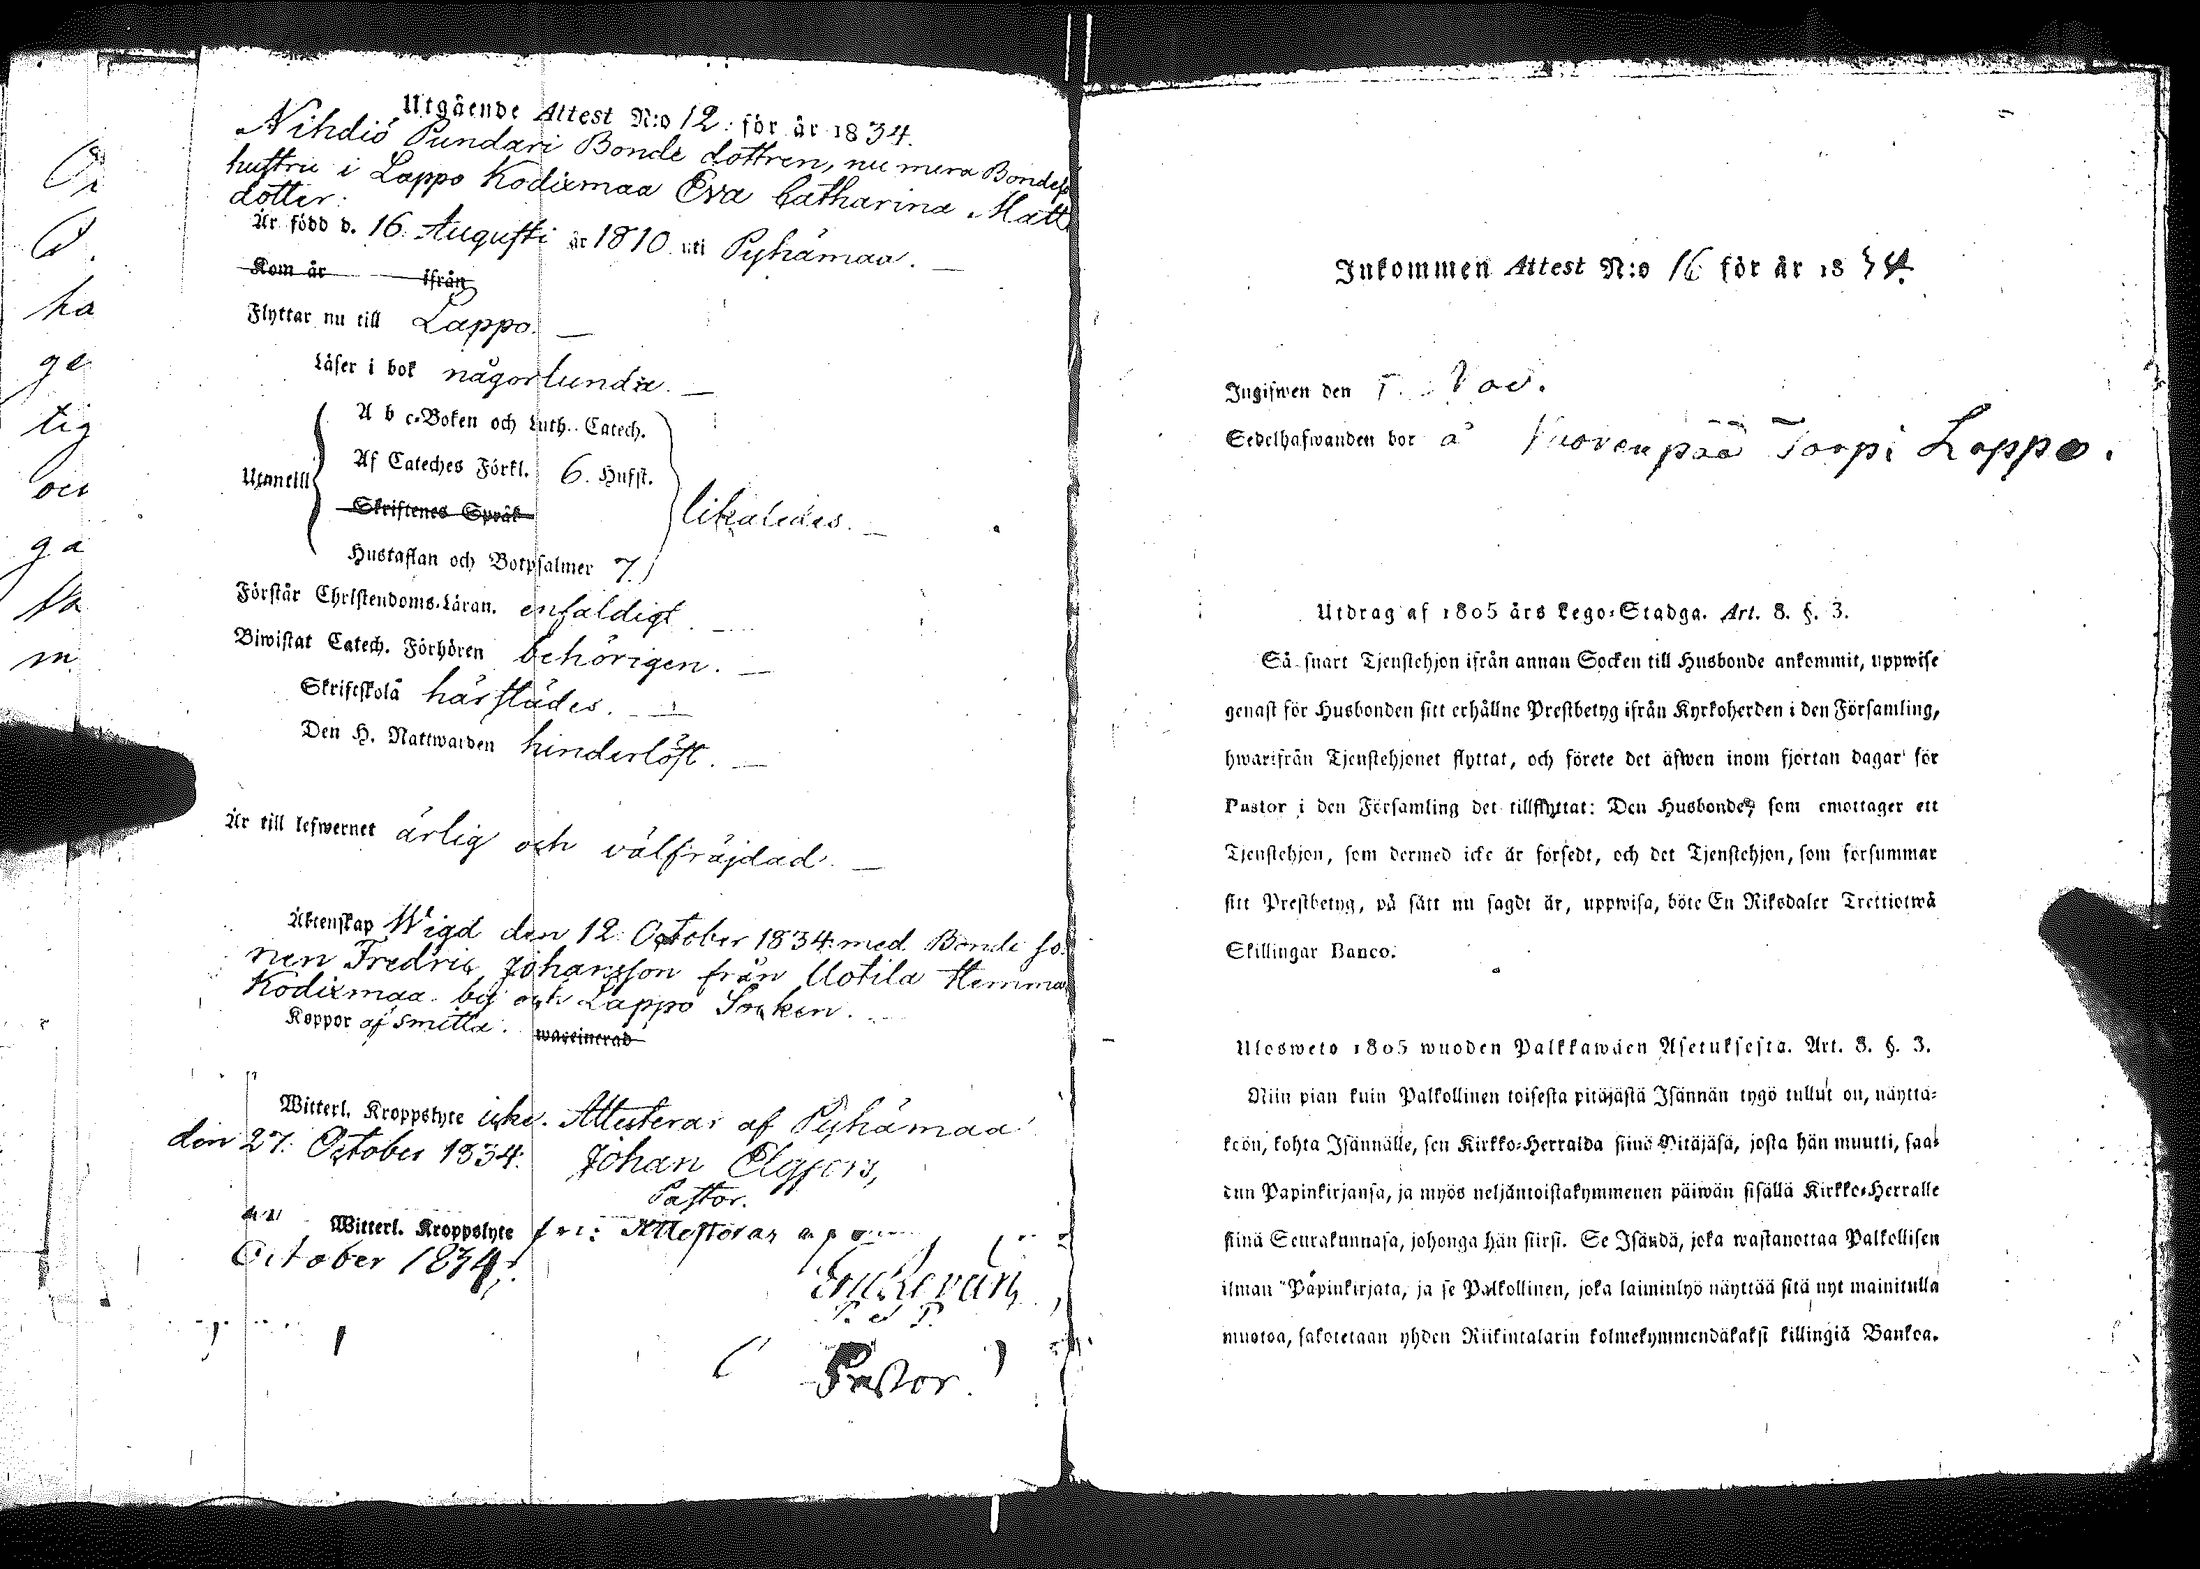 Utgående Attest N:o 12. för år 1834.
Nihdiö Pundari Bonde dottren, nu mera Bondes
hustru i Lappo Kodixmaa Eva Catharina Matts
dotter.
Är född d. 16. Augusti år 1810 uti Pyhämaa.
Kom år ifrån
Flyttar nu till Lappo.
Läser i bok någorlunda.
A b c-Boken och Luth. Catech.
Af Cateches Förkl. 6. Hufst.
Utantill
Skriftenes Språk
likaledes.
Hustaflan och Botpsalmer 7.
Förstår Christendoms-Läran. enfaldigt.
Biwistat Catech. Förhören behörigen.
Skriftskola härstädes.
Den H. Nattwarden hinderlöst.
Är till lefwernet ärlig och välfräjdad.
Äktenskap Wigd den 12. October 1834. med Bonde so-
nen Fredric Johansson från Uotila Hemman
Kodixmaa by och Lappo Socken.
Koppor af smitta. waccinerad
Witterl. Kroppslyte icke. Attesterar af Pyhämaa
den 27. October 1834. Johan
Pastor.
Witterl. Kroppslyte fri: Attesteras
October 1834.
Pastor.
Or
ha
ge
tig
och
ga
ka
m
Inkommen Attest N:o 16 för år 1834.
Ingifwen den Nov.
Sedelhafwanden bor å Vuorenpää Torpi Lappo.
Utdrag af 1805 års Lego-Stadga. Art. 8. §. 3.
Så snart Tjenstehjon ifrån annan Socken till Husbonde ankommit, uppwise
genast för Husbonden sitt erhållne Prestbetyg ifrån Kyrkoherden i den Församling,
hwarifrån Tjenstehjonet flyttat, och förete det äfwen inom fjortan dagar för
Pastor i den Församling det tillflyttat: Den Husbonde, som emottager ett
Tjenstehjon, som dermed icke är försedt, och det Tjenstehjon, som försummar
sitt Prestbetyg, på sätt nu sagdt är, uppwisa, böte En Riksdaler Trettiotwå
Skillingar Banco.
Ulosweto 1805 wuoden Palkkawäen Asetuksesta. Art. 8. §. 3.
Niin pian kuin Palkollinen toisesta pitäjästä Isännän tygö tullut on, näyttä-
keön, kohta Isännälle, sen Kirkko-Herralda siinä Pitäjäsä, josta hän muutti, saa-
dun Papinkirjansa, ja myös neljäntoistakymmenen päiwän sisällä Kirkko-Herralle
siinä Seurakunnasa, johonga hän siirsi. Se Isändä, joka wastanottaa Palkollisen
ilman Papinkirjata, ja se Palkollinen, joka laiminlyö näyttää sitä nyt mainitulla
muotoa, sakotetaan yhden Riikintalarin kolmekymmendäkaksi killingiä Bankoa.